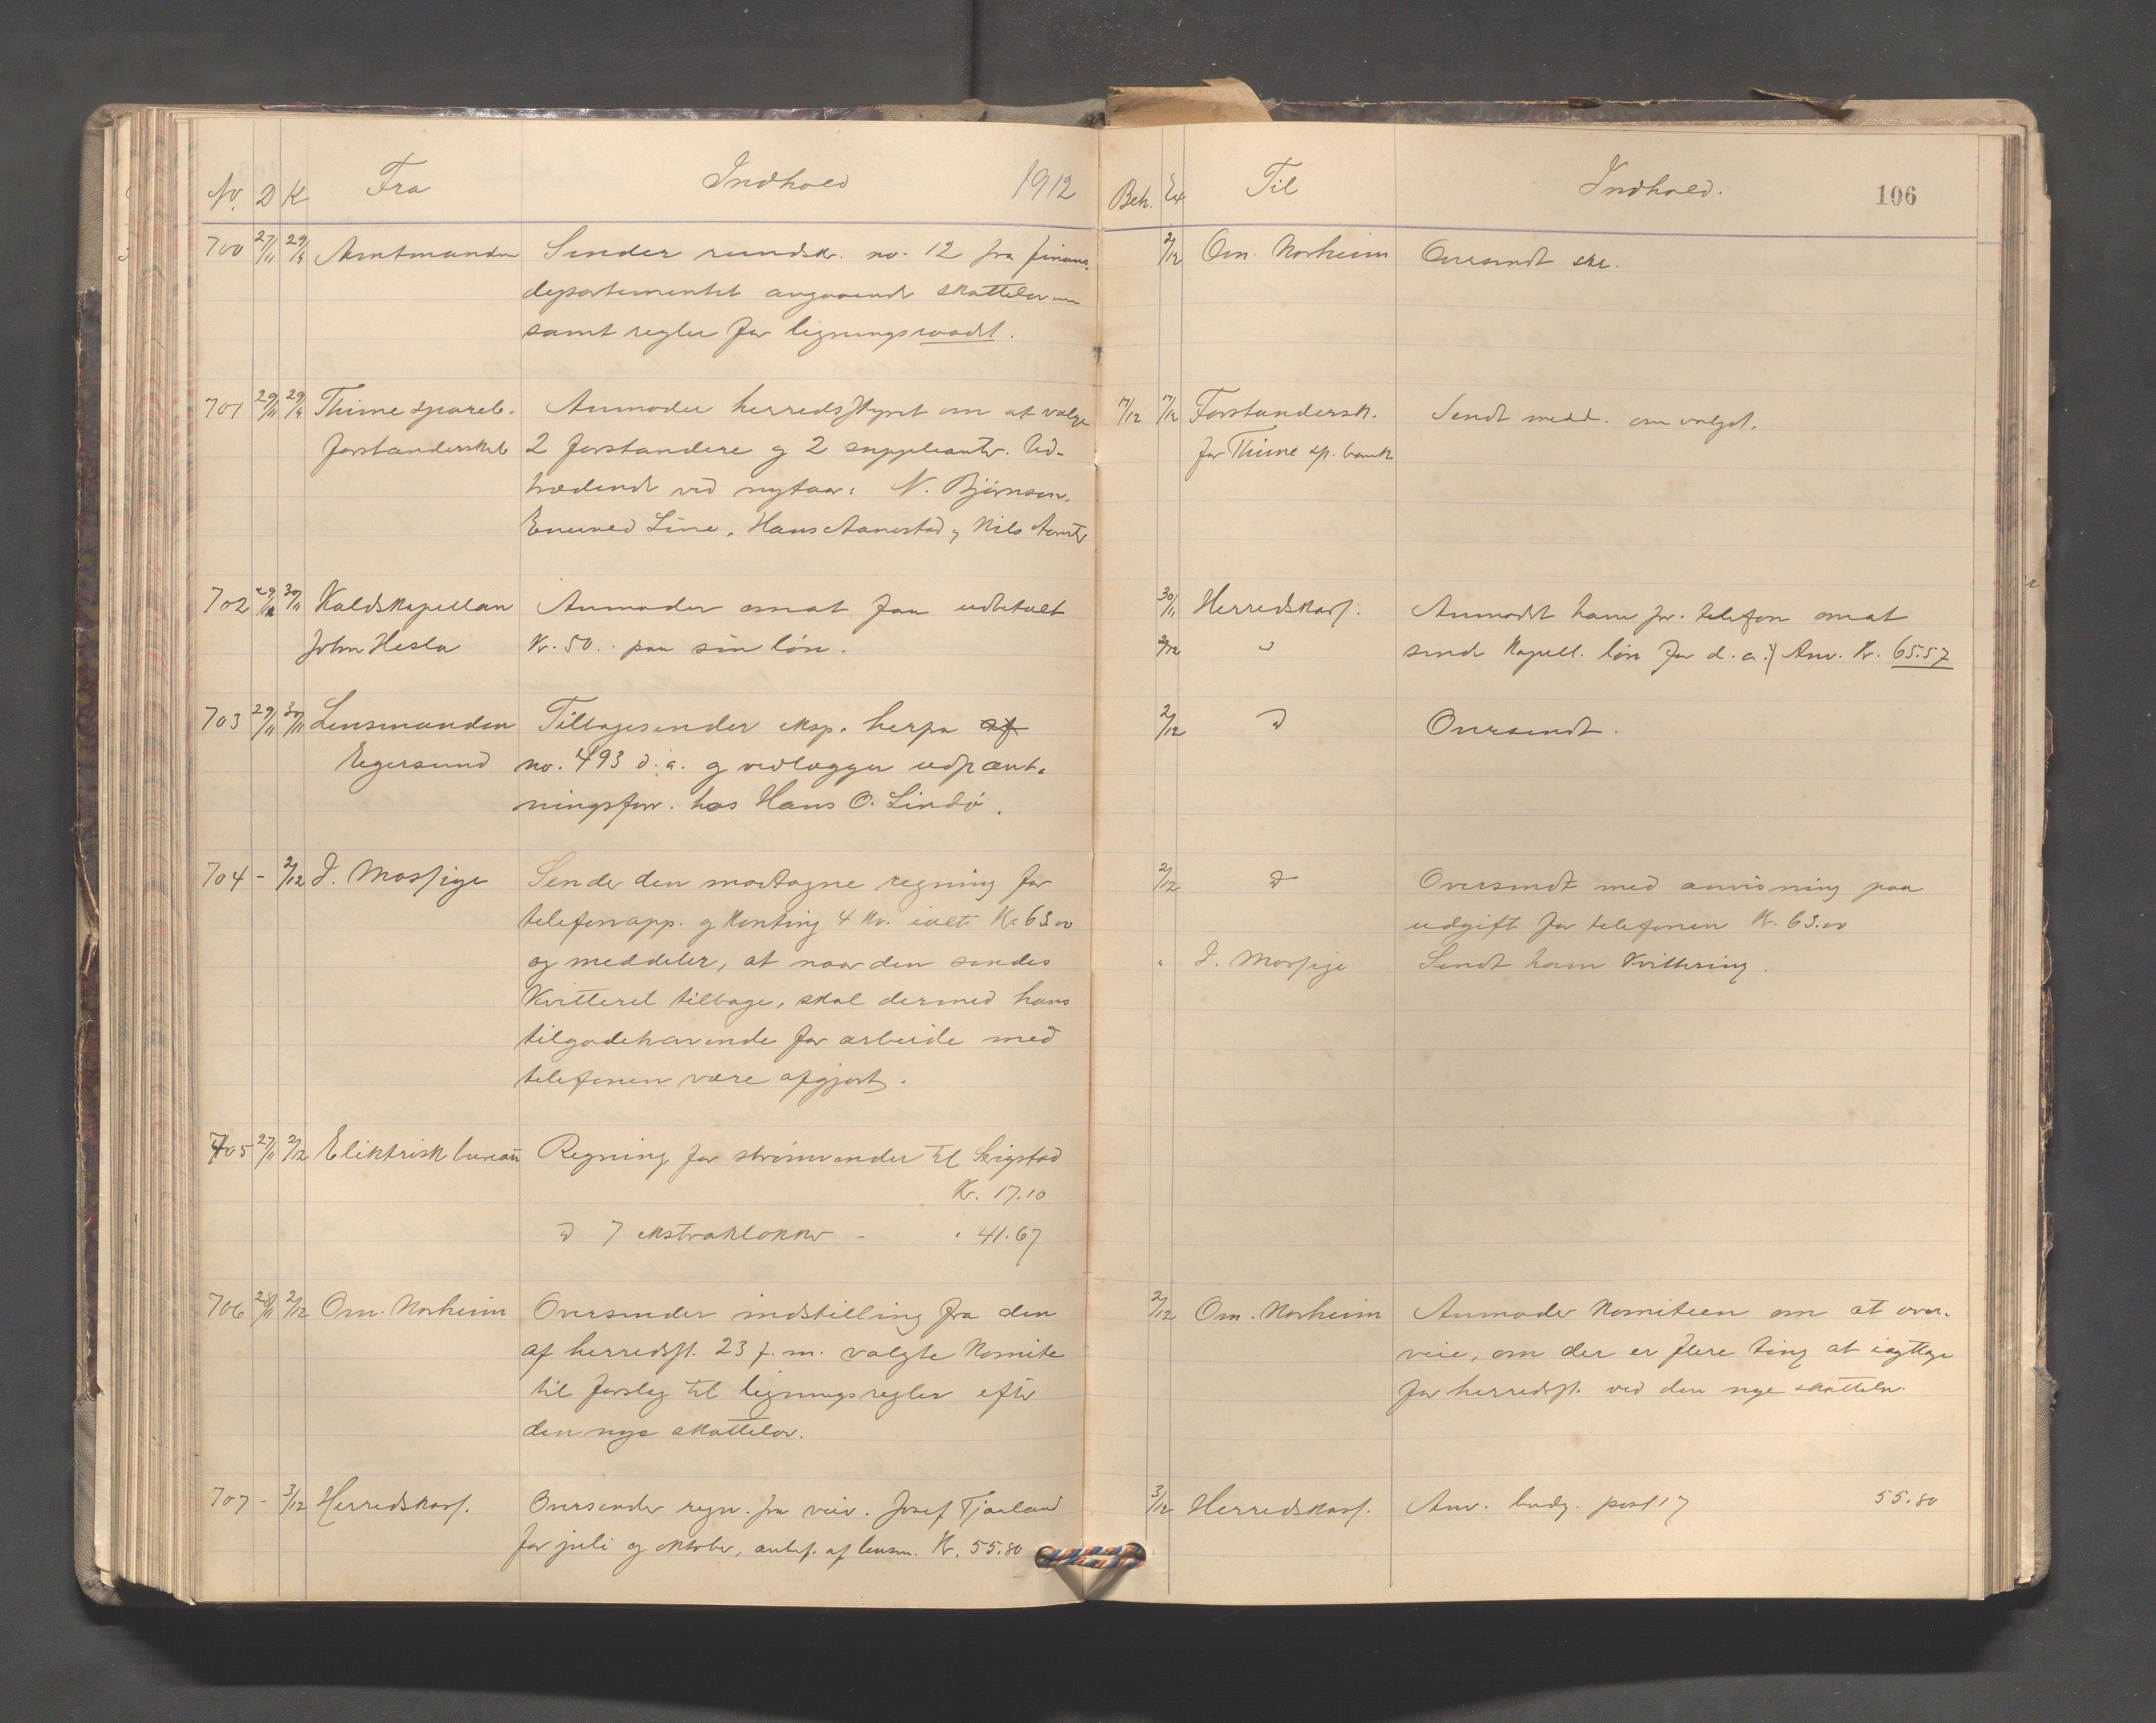 No. D K Fra Indhold 1912
700 27/11 29/11 Amtmanden Sender rundskr. no. 12 fra finans-
departementet angaaende skatteloven
samt regler for ligningsraadet.
701 29/11 29/11 Thime spareb. Anmoder herredsstyret om at vælge
forstanderskab 2 forstandere og 2 suppleanter. Ud-
trædende ved nytaar: N. Björnson,
Enevald Line, Hans Aanestad, Nils
702 29/11 30/11 Kaldskapellan Anmoder om at faa udbetalt
John Hesla Kr. 50. paa sin løn.
703 29/11 30/11 Lensmanden Tilbagesender eksp. herfra
Egersund no. 493 d. a. og vedlægger udpant-
ningsforr. hos Hans O. Lindö.
704 - 2/12 J. Mossige Sender den modtagne regning for
telefonapp. og Konting 4 Kr. ialt Kr. 63.00
og meddeler, at naar den sendes
Kvitteret tilbage, skal dermed hans
tilgodehavende for arbeide med
telefonen være afgjort.
705 27/11 2/12 Elektrisk bureau Regning for strömvender til Serigstad
Kr. 17.10
d 7 ekstraklokker - " 41.67
706 28/11 2/12 Om. Norheim Oversender indstilling fra den
af herredsst. 23 f. m. valgte Komite
til forslag til ligningsregler efter
den nye skattelov.
707 - 3/12 Herredskass. Oversender regn. fra veiv. Josef Tjaaland
for juli og oktober, anbef. af lensm. Kr. 55.80
Beh. Ex Til Indhold. 106
2/12 Om. Norheim Oversendt skr.
17/12 17/12 Forstandersk. Sendt medd. om valget.
for Thime sp. bank
30/11 Herredskass. Anmodet ham pr. telefon om at
2/12 " sende Kapell. løn for d. a. Anv. Kr. 65.57
2/12 d Oversendt.
2/12 d Oversendt med anvisning paa
udgift for telefonen Kr. 63.00
" J. Mossige Sendt ham Kvittering.
2/12 Om. Norheim Anmoder Komiteen om at over-
veie, om der er flere ting at iagttage
for herredsst. ved den nye skattelov.
3/12 Herredskass. Anv. budg. post 17 55.80